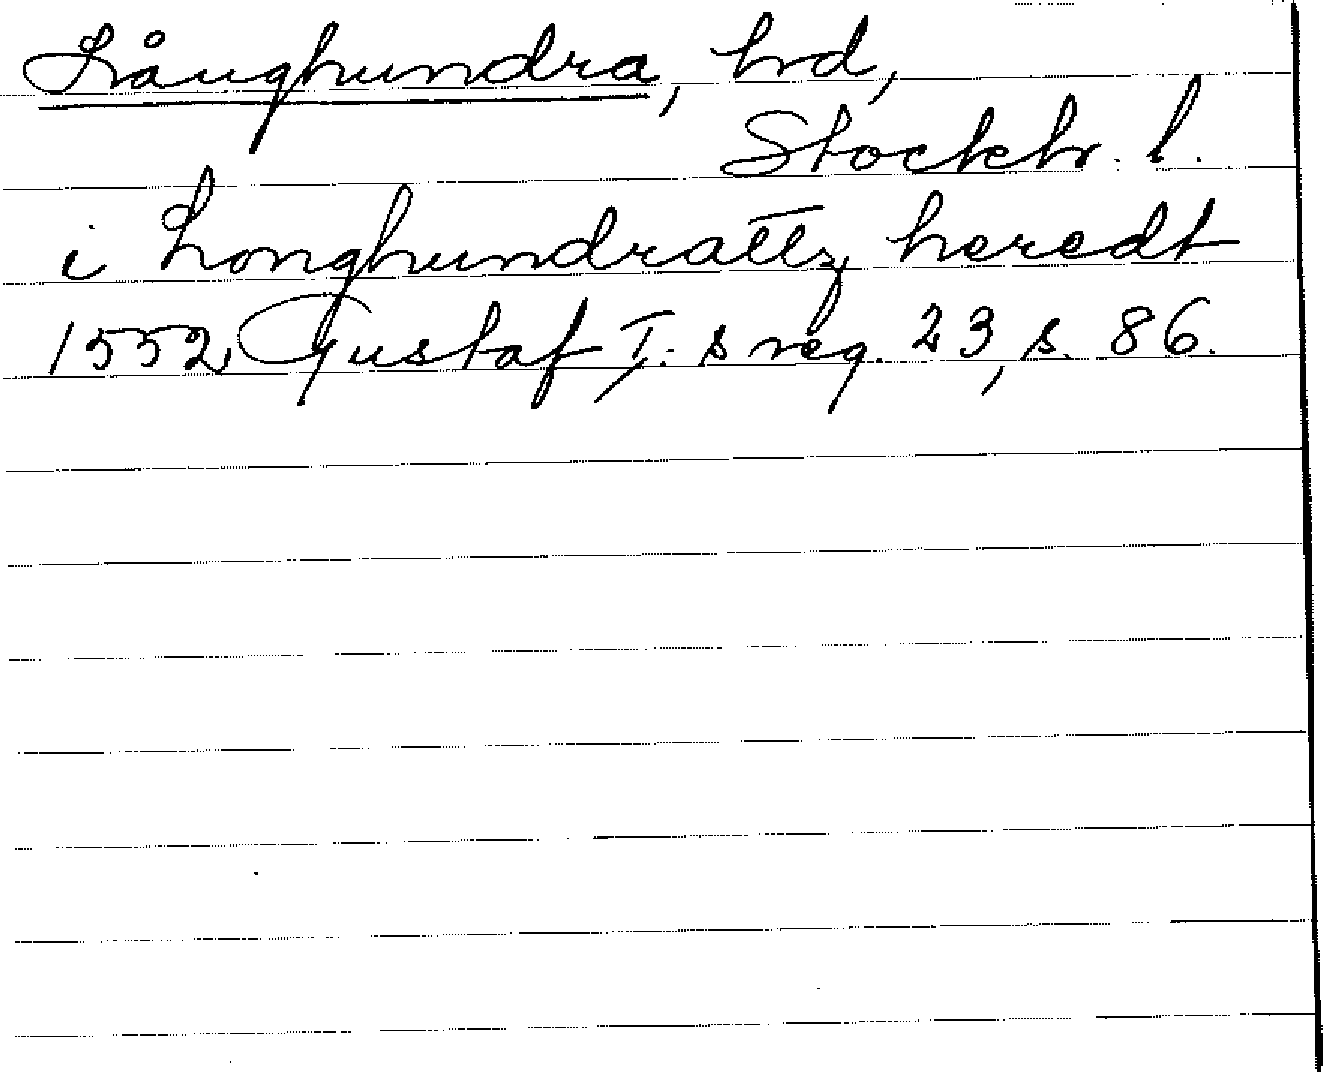 Långhundra, hd,
Stockh. l.
i Longhundratz heredt
1552, Gustaf I:s reg. 23, s. 86.